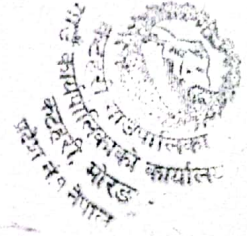 कटहरी गाउँपालिका
गाउँ कार्यपालिकाको कार्यालय
कटहरी, मोरङ
प्रदेश नं. १ नेपाल